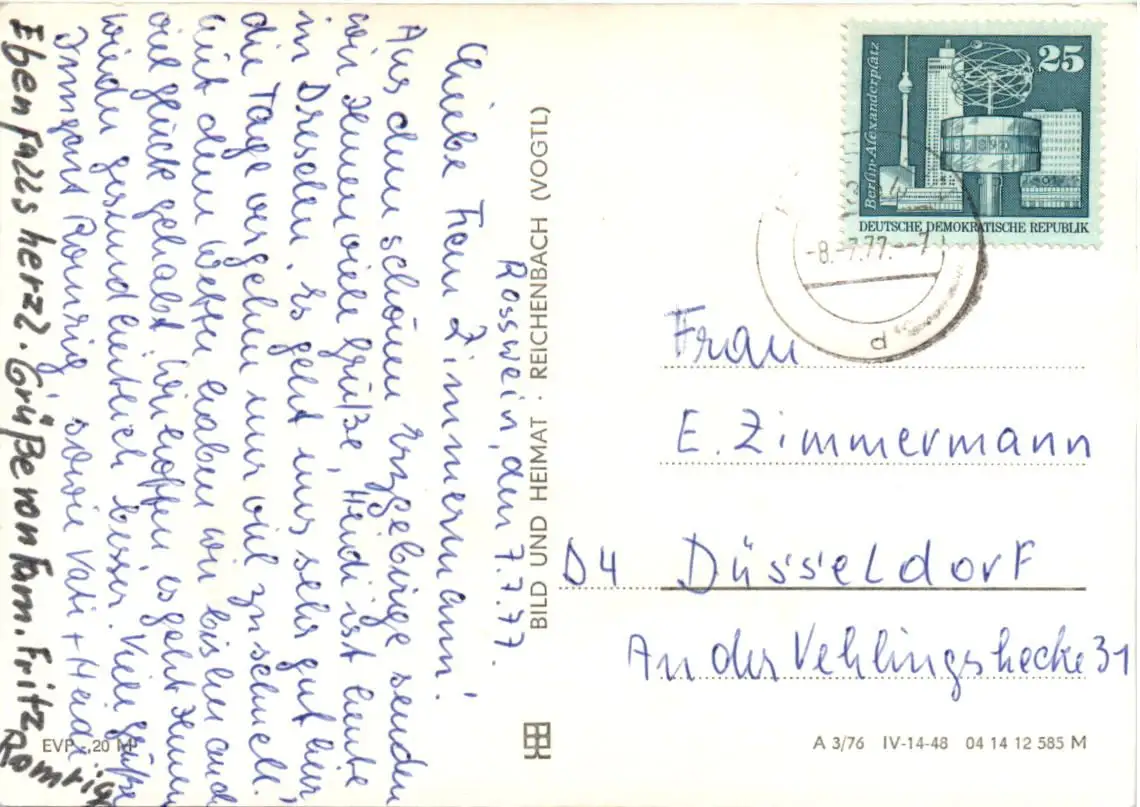 Rosswein, den 7.7.77.
Liebe Frau Zimmermann!
Aus dem schönen Erzgebirge senden
wir Ihnen viele Grüße, Heidi ist heute
in Dresden. Es geht uns sehr gut hier
die Tage vergehen nur viel zu schnell.
Mit dem Wetter haben wir bisher auch
viel Glück gehabt. Wir hoffen es geht Ihnen
wieder gesundheitlich besser. Viele Grüße
Irmgard Romrig, sowie Vati + Heidi
Ebenfalls herzl. Grüße von Fam. Fritz
Romrig
EVP -,20 M
BILD UND HEIMAT · REICHENBACH (VOGTL)
Berlin-Alexanderplatz
25
DEUTSCHE DEMOKRATISCHE REPUBLIK
-8.-7.77.-7
d
Frau
E. Zimmermann
D4 Düsseldorf
An der Vehlingshecke 31
A 3/76 IV-14-48 04 14 12 585 M